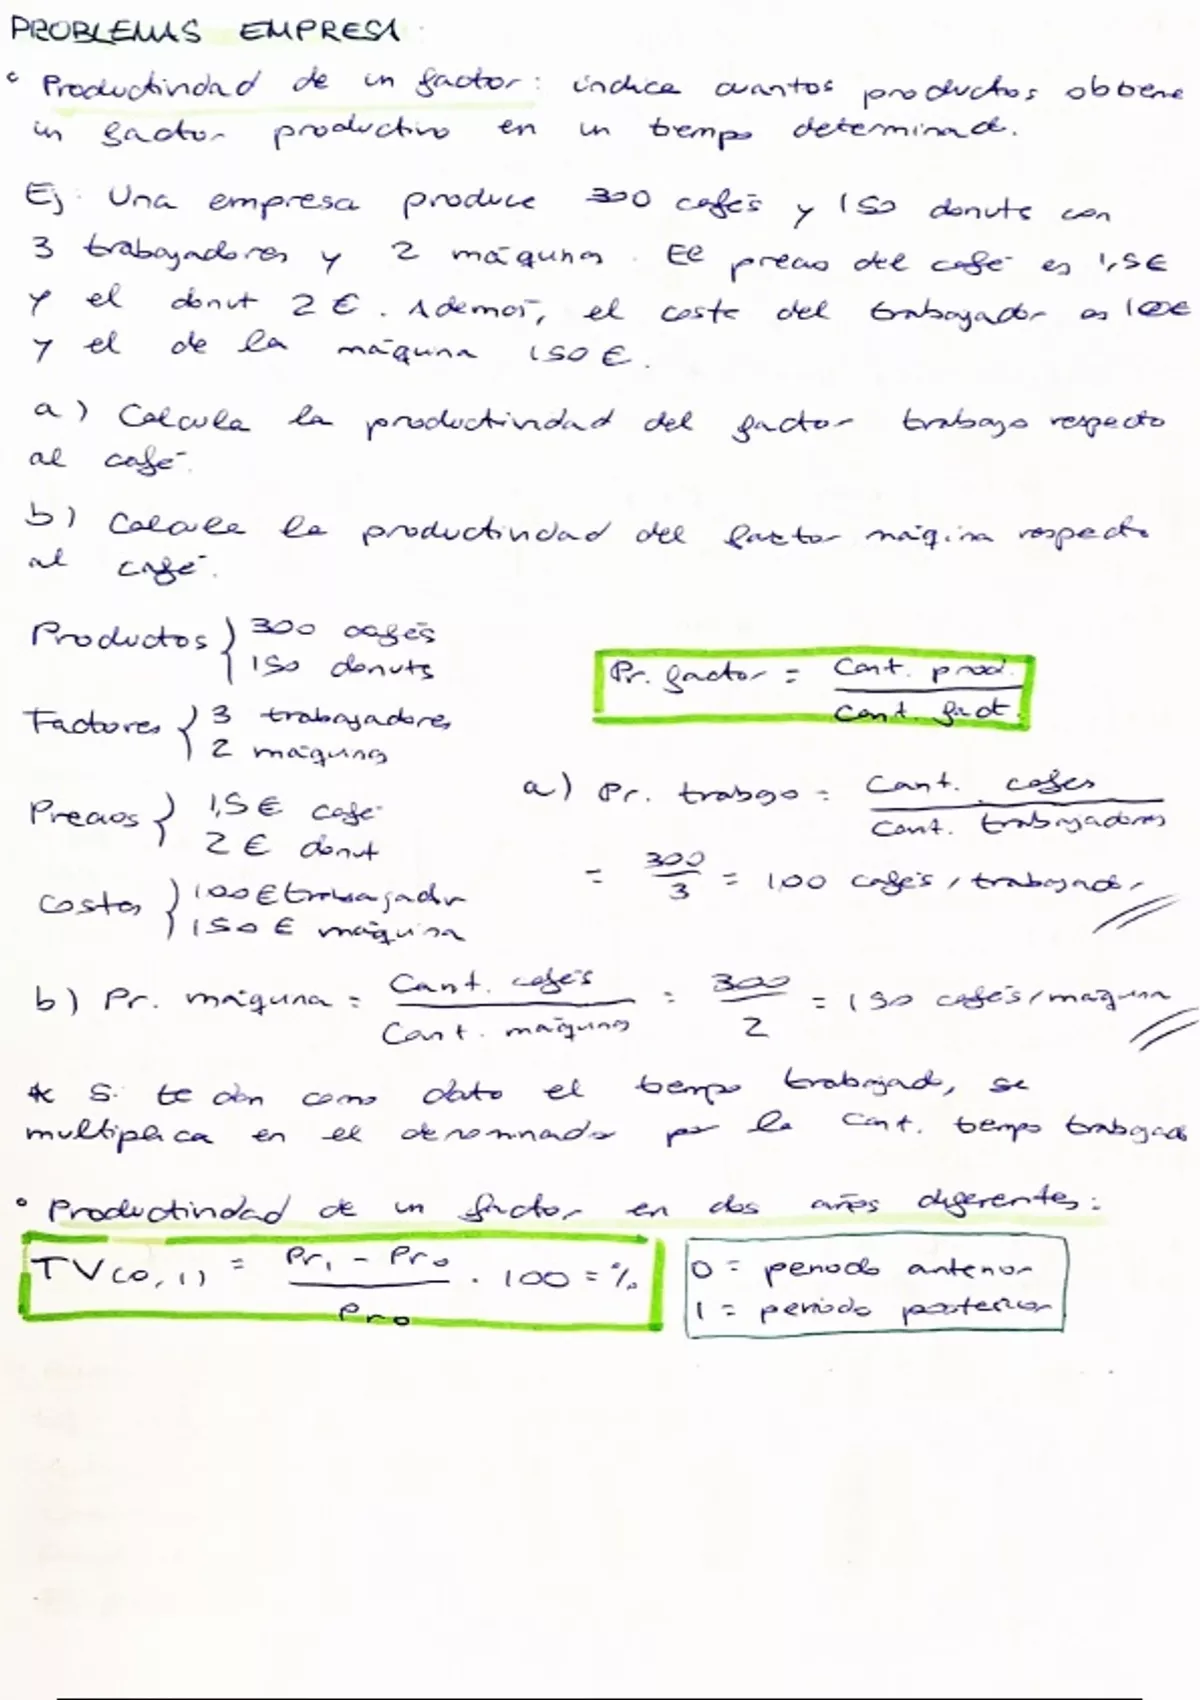 PROBLEMAS EMPRESA:
• Productividad de un factor: indica cuantos productos obtiene
un factor productivo en un tiempo determinado.
Ej: Una empresa produce 300 cafés y 150 donuts con
3 trabajadores y 2 máquinas. El precio del café es 1,5€
y el donut 2€. Además, el coste del trabajador es 100€
y el de la máquina 150€.
a) Calcula la productividad del factor trabajo respecto
al café.
b) Calcula la productividad del factor máquina respecto
al café.
Productos { 300 cafés
150 donuts
Factores { 3 trabajadores
2 máquinas
Precios { 1,5€ café
2€ donut
Costes { 100€ trabajador
150€ máquina
Pr. factor = Cant. prod. / Cant. fact.
a) Pr. trabajo = Cant. cafés / Cant. trabajadores
= 300 / 3 = 100 cafés / trabajador
b) Pr. máquina = Cant. cafés / Cant. máquinas = 300 / 2 = 150 cafés / máquina
* Si te dan como dato el tiempo trabajado, se
multiplica en el denominador por la cant. tiempo trabajado
• Productividad de un factor en dos años diferentes:
TV(0,1) = Pr1 - Pr0 / Pr0 · 100 = %
0 = periodo anterior
1 = periodo posterior